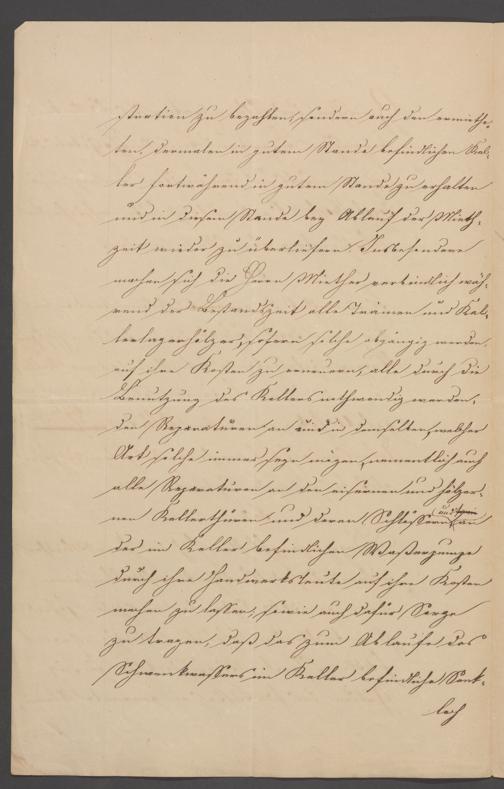 stration zu bezahlen, sondern auch den ermiethe-
ten, dermalen in gutem Stande befindlichen Kel-
ler fortwährend in gutem Stande zu erhalten
und in diesem Stande bey Ablauf der Mieth-
zeit wieder zu überliefern. Insbesondere
machen sich die Herren Miether verbindlich wäh-
rend der Bestandszeit alle Träinen und Kel-
lerlagerhölzer, sofern solche abgängig werden,
auf ihre Kosten zu erneuern, alle durch die
Benutzung des Kellers nothwendig werden-
den Reparaturen an und in demselben, welcher
Art solche immer seyn mögen, namentlich auch
alle Reparaturen an den eisernen und hölzer-
nen Kellerthüren und deren Schlössern und an
der im Keller befindlichen Wasserpumpe
durch ihre Handwerksleute auf ihre Kosten
machen zu lassen, sowie auch dafür Sorge
zu tragen, daß das zum Ablaufe des
Schwenkwassers im Keller befindliche Senk-
loch